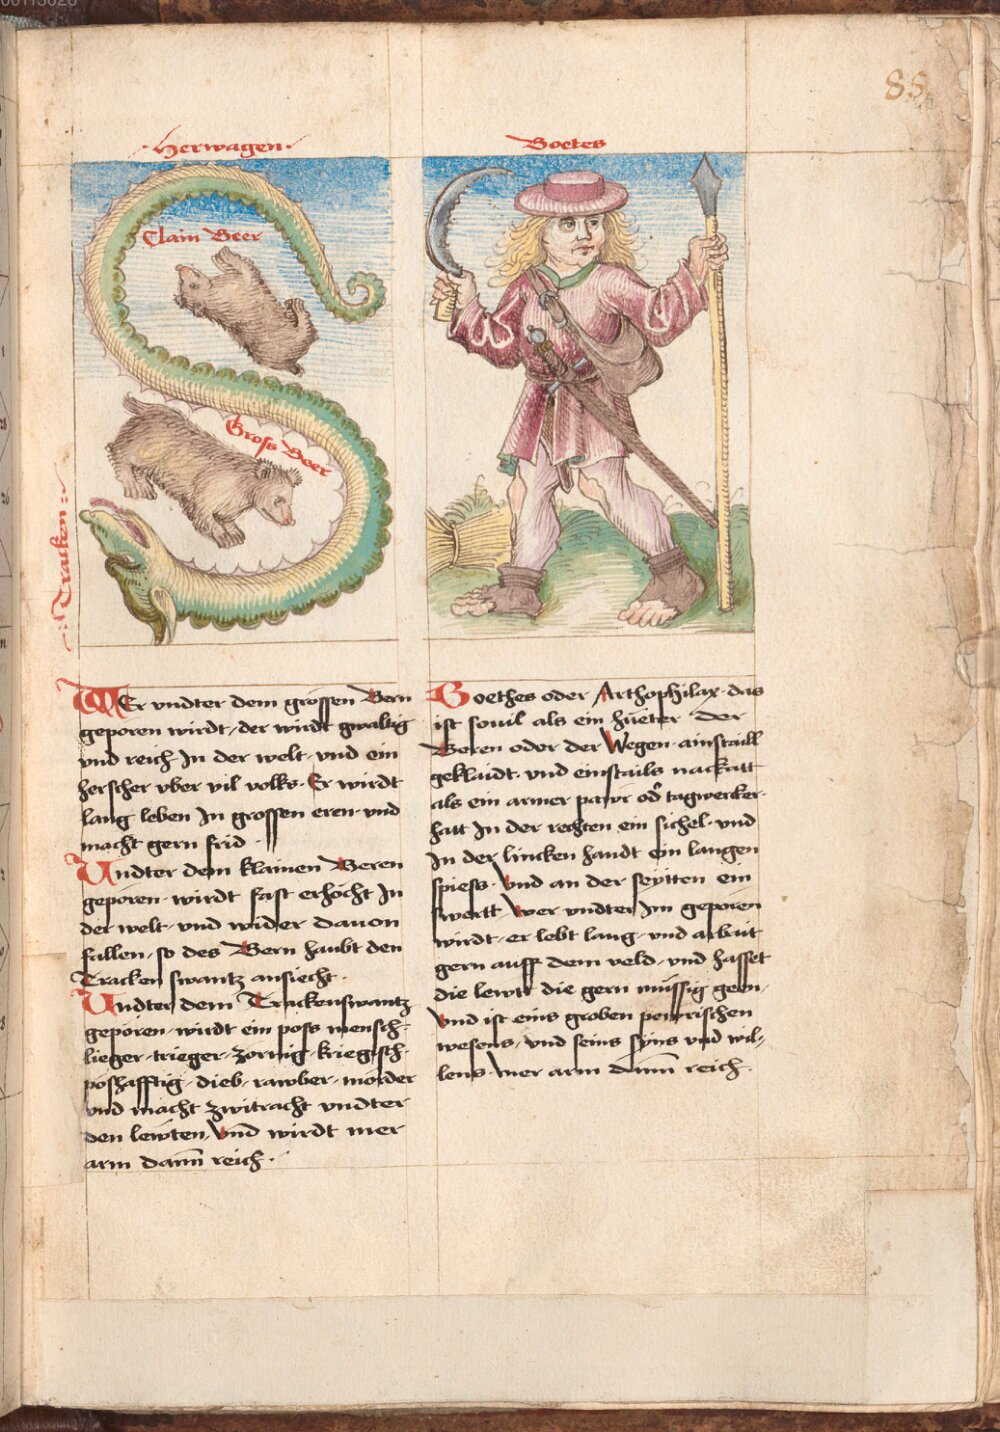 00113026
88
Herwagen
Clain Beer
Gross Beer
Tracken
WEr vndter dem grossen Bern
geporen wirdt, der wirdt gwaltig
vnd reich In der welt, vnd ein
herscher vber vil volks. Er wirdt
lang leben In grossen eren, vnd
macht gern frid.
Vndter dem klainen Beren
geporen, wirdt fast erhöcht In
der welt, vnd wider dauon
fallen, so des Bern haubt den
Tracken swantz ansiecht.
Vndter dem Trackenswantz
geporen, wirdt ein poss mensch,
lieger, trieger, zornig, kriegisch,
poshafftig, dieb, rawber, mörder
vnd macht zwitracht vndter
den lewten, Vnd wirdt mer
arm dann reich.
Boetes
Boethes oder Arthophilax, das
ist souil als ein hüeter der
Beren oder der Wegen, ainstaill
geklaidt, vnd einstails nackatt
als ein armer pawr od tagwercker,
hatt In der rechten ein sichel, vnd
In der lincken handt ein langen
spiess, Vnd an der seytten ein
swertt, Wer vndter Im geporen
wirdt, er lebt lang, vnd arbait
gern auff dem veld, vnd hasset
die lewtt die gern müssig geen,
Vnd ist eins groben pewrischen
wesens, vnd seins syns vnd wil-
lens, mer arm dann reich.